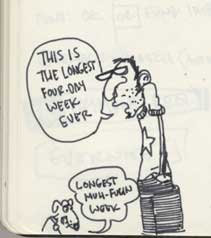 THIS IS
THE LONGEST
FOUR-DAY
WEEK
EVER
LONGEST
MUH-FUKN
WEEK